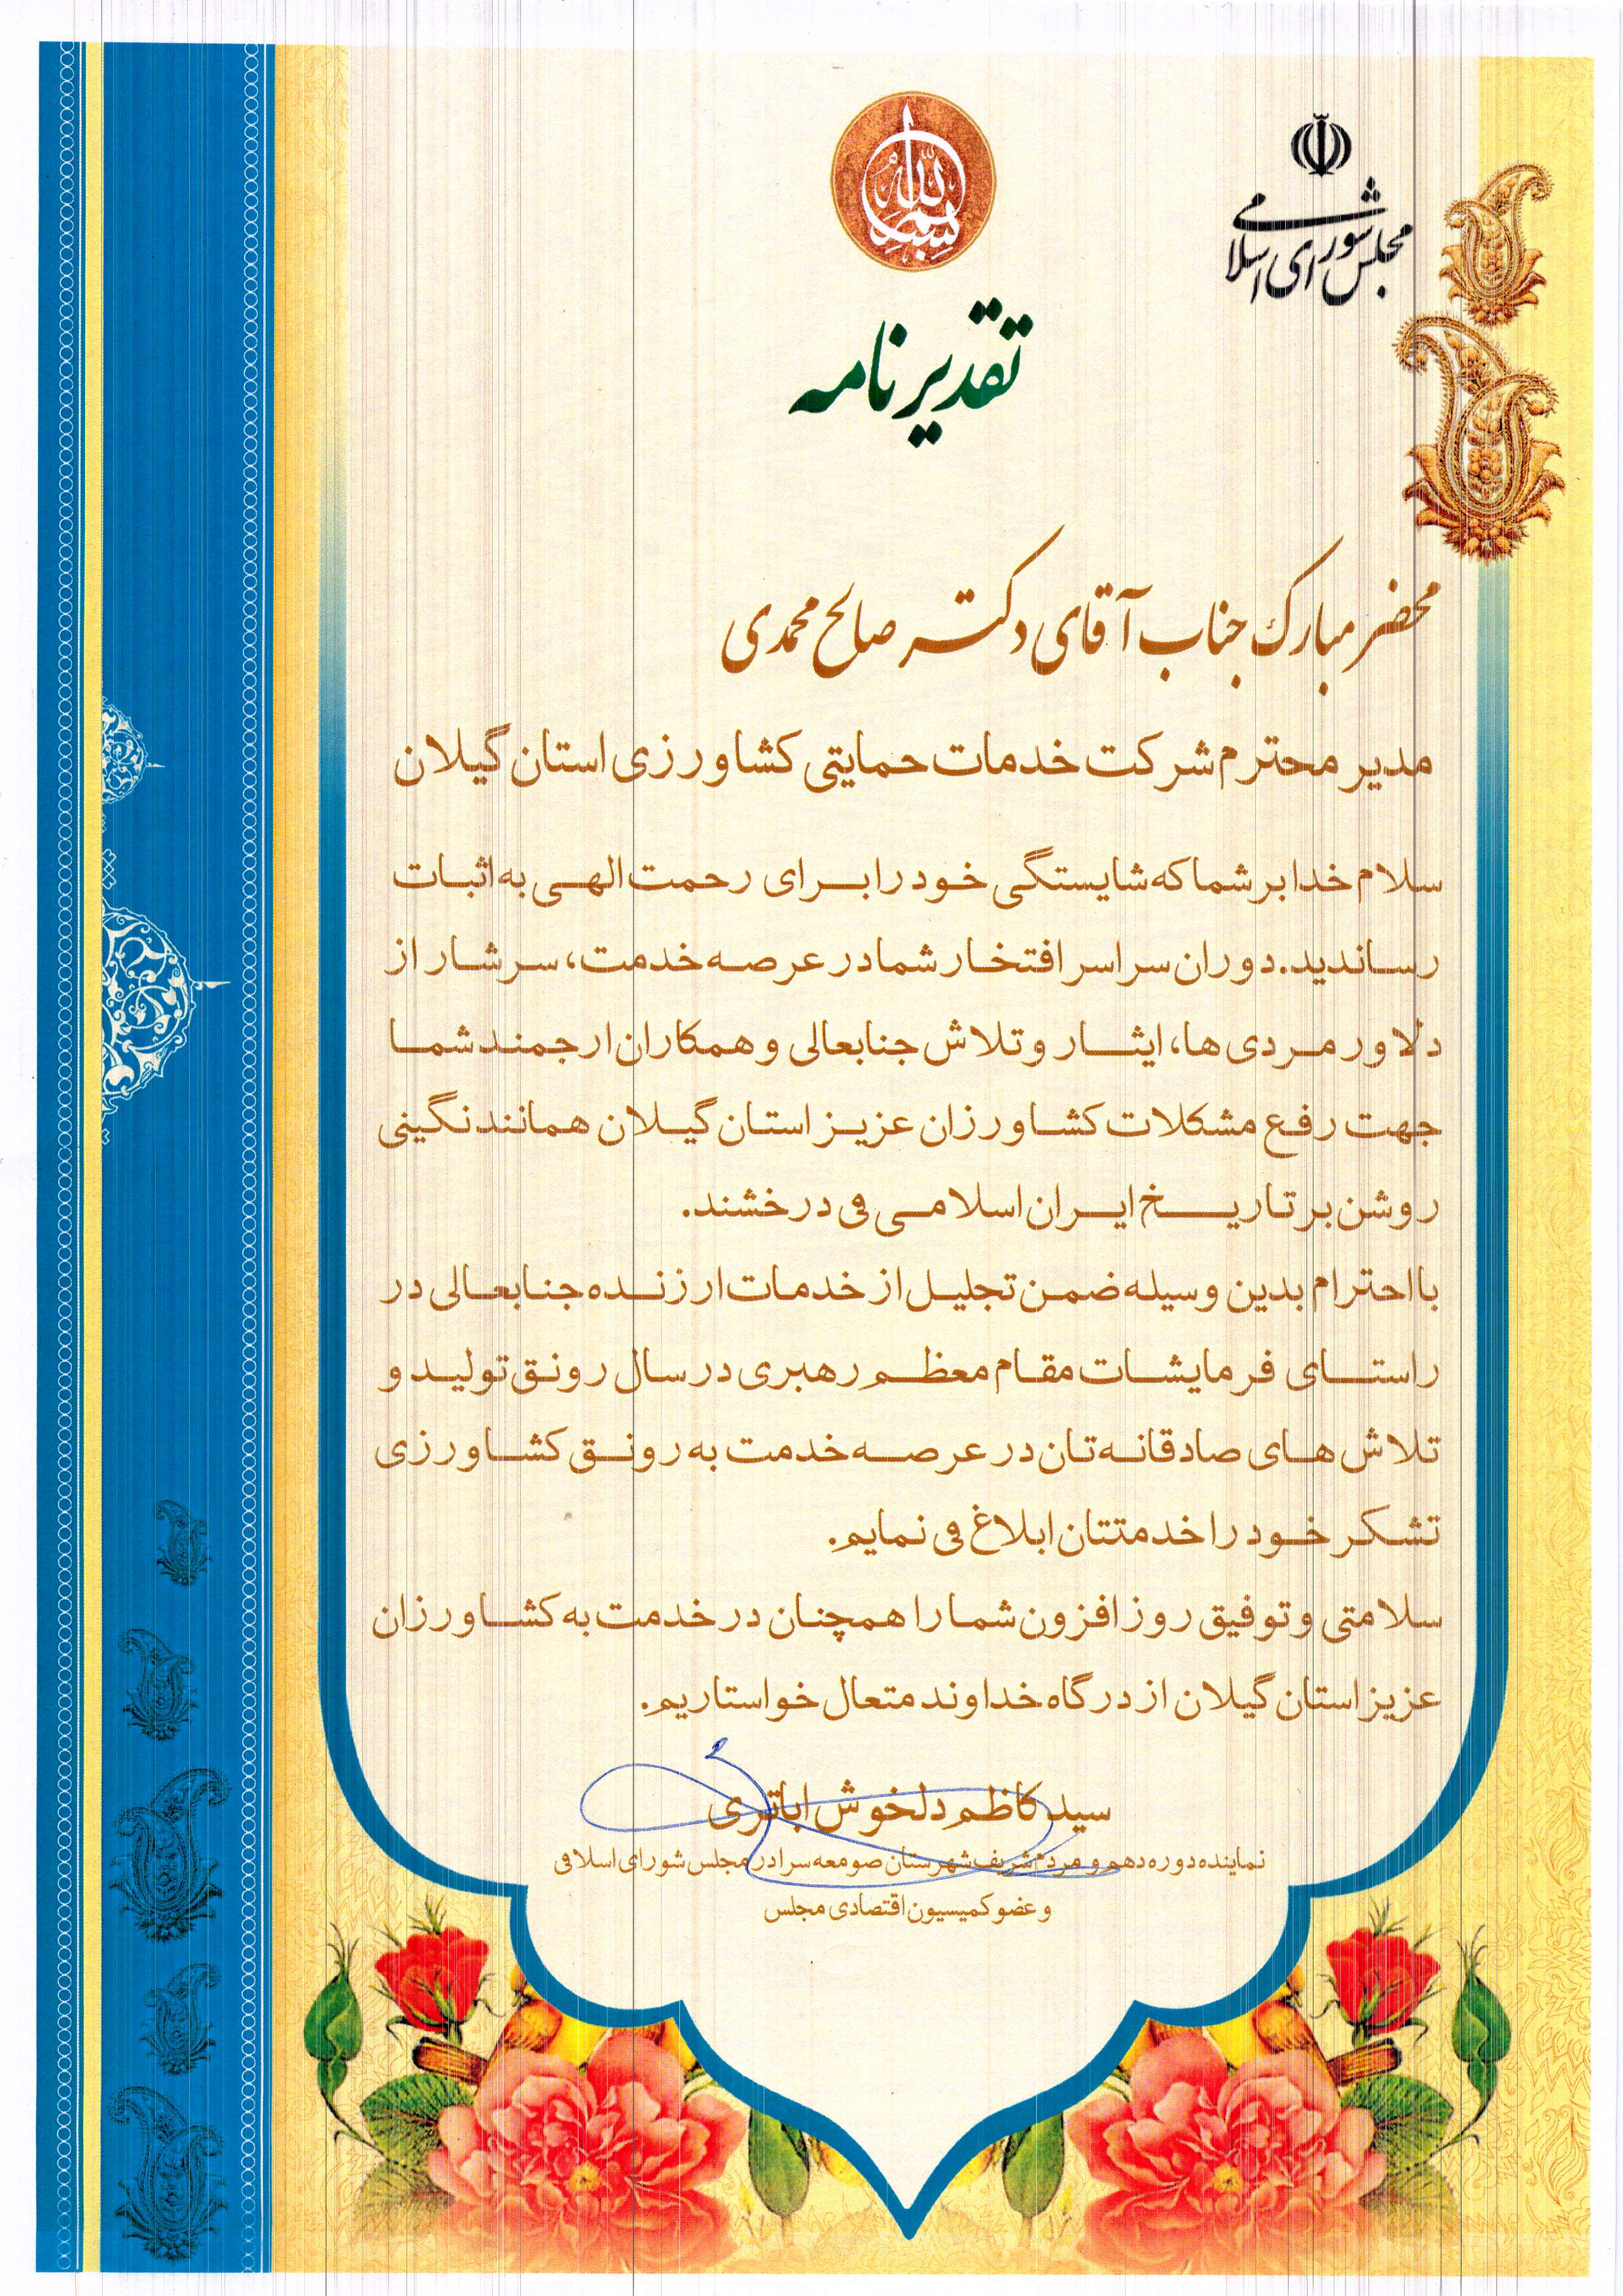 بسم الله
مجلس شورای اسلامی
تقدیرنامه
محضر مبارک جناب آقای دکتر صالح محمدی
مدیر محترم شرکت خدمات حمایتی کشاورزی استان گیلان
سلام خدا بر شما که شایستگی خود را برای رحمت الهی به اثبات
رساندید. دوران سراسر افتخار شما در عرصه خدمت، سرشار از
دلاورمردی ها، ایثار و تلاش جنابعالی و همکاران ارجمند شما
جهت رفع مشکلات کشاورزان عزیز استان گیلان همانند نگینی
روشن بر تاریخ ایران اسلامی می درخشند.
با احترام بدین وسیله ضمن تجلیل از خدمات ارزنده جنابعالی در
راستای فرمایشات مقام معظم رهبری در سال رونق تولید و
تلاش های صادقانه تان در عرصه خدمت به رونق کشاورزی
تشکر خود را خدمتتان ابلاغ می نمایم.
سلامتی و توفیق روز افزون شما را همچنان در خدمت به کشاورزان
عزیز استان گیلان از درگاه خداوند متعال خواستاریم.
سید کاظم دلخوش اباتری
نماینده دوره دهم و مردم شریف شهرستان صومعه سرا در مجلس شورای اسلامی
و عضو کمیسیون اقتصادی مجلس